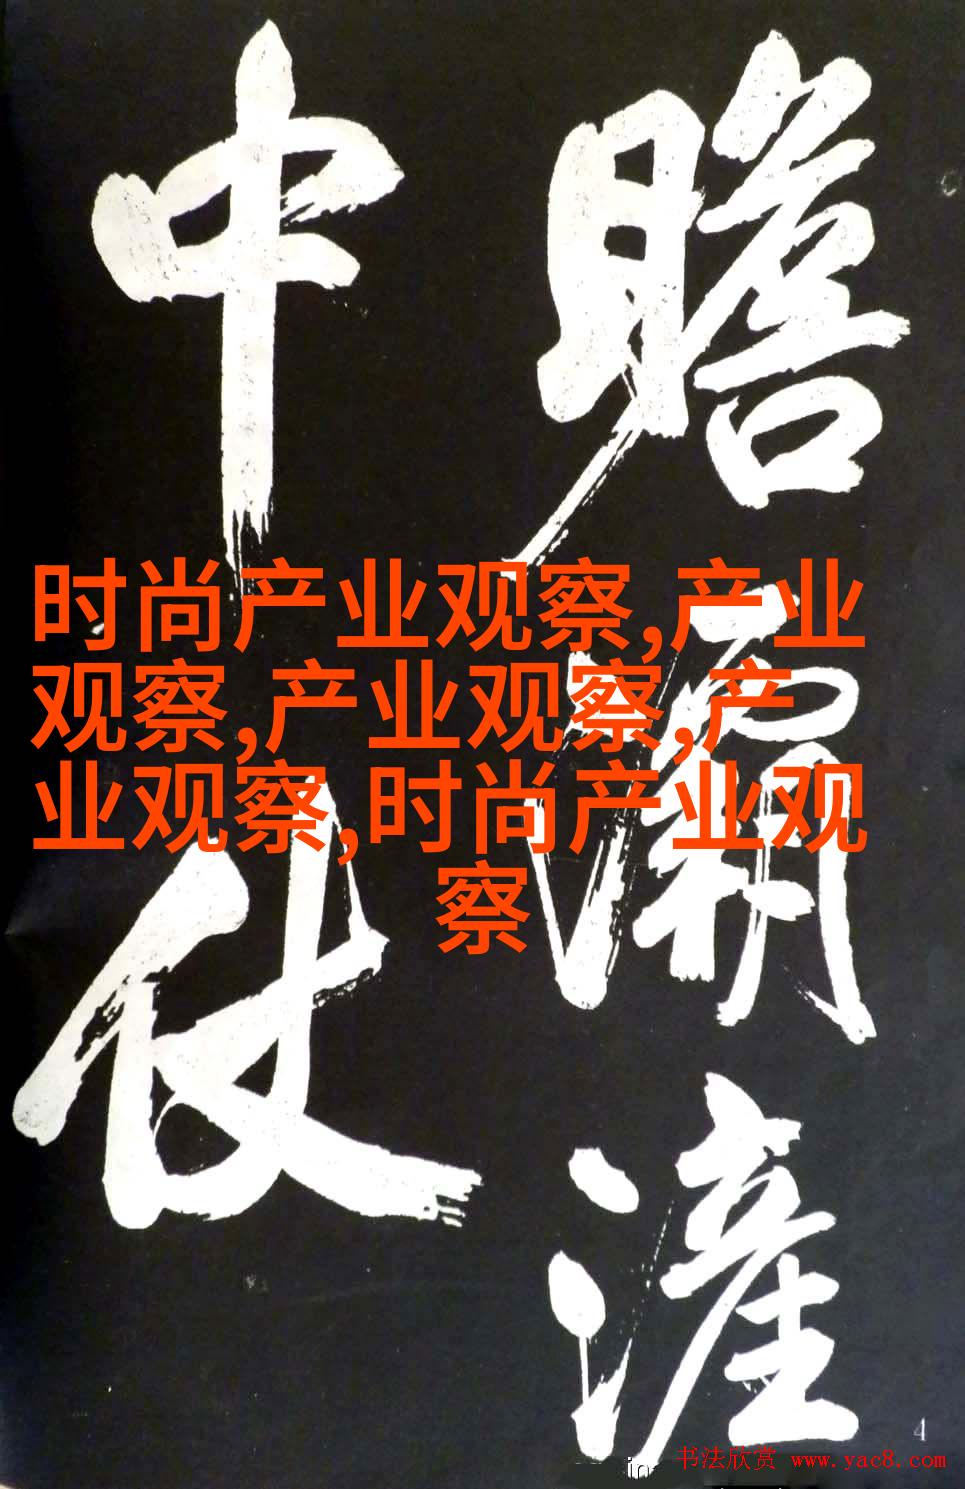 瞻灞滻
中仗
时尚产业观察,产业
观察,产业观察,产
业观察,时尚产业观
察
4
书法欣赏 www.yac8.com